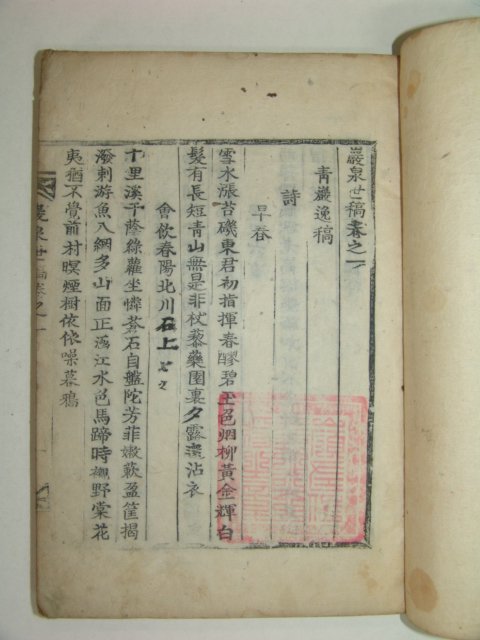 巖泉世稿卷之一
青巖逸稿
詩
早春
雪水漲苔磯東君初指揮春醪碧玉色烟柳黃金輝白
髮有長短青山無是非杖藜藥園裏夕露還沾衣
會飲春陽北川石上
十里溪千蔭綠蘿坐憐蒼石自盤陀芳菲嫩蔌盈筐揭
潑刺游魚入網多山面正濃江水色馬蹄時襯野棠花
夷猶不覺前村暝煙樹依依噪暮鴉